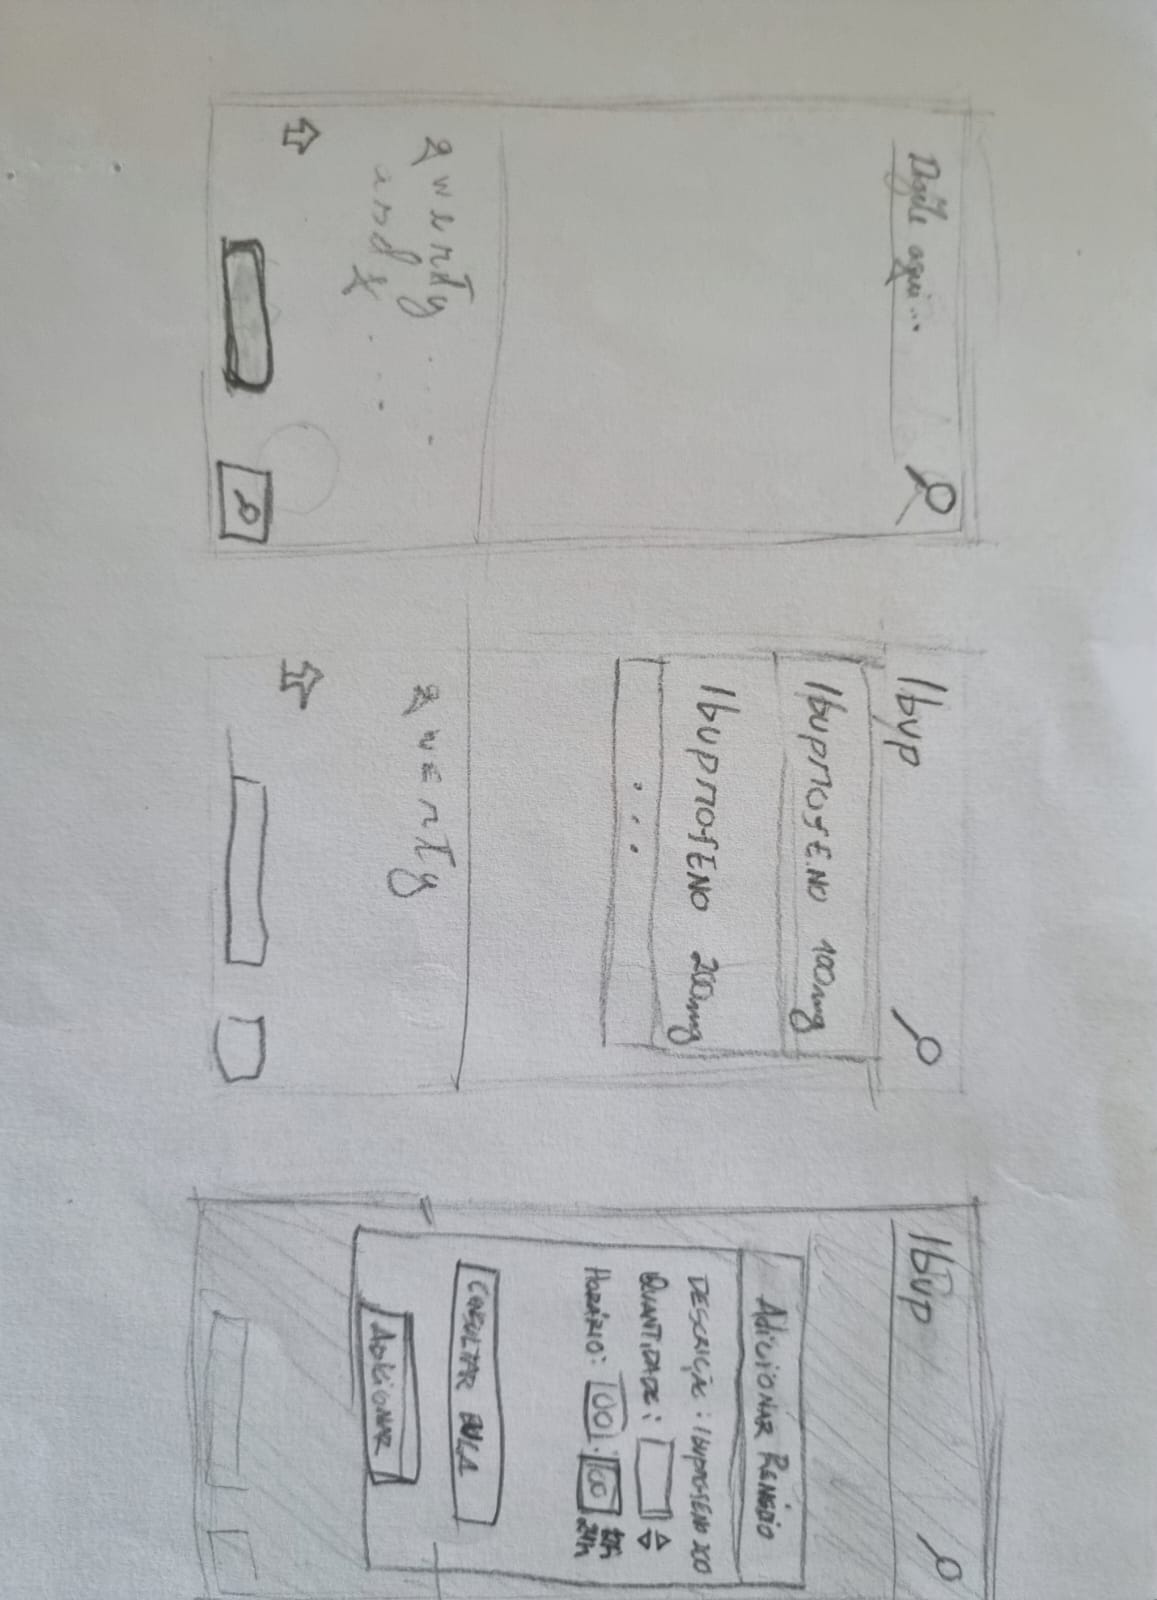 Digite aqui...
qwerty . . . .
asdz . . .
Ibup
Ibuprofeno 100mg
Ibuprofeno 200mg
...
qwerty
Ibup
Adicionar Remédio
Descrição: Ibuprofeno 200
Quantidade:
Horário: 00 : 00 12h
24h
Consultar Bula
Adicionar